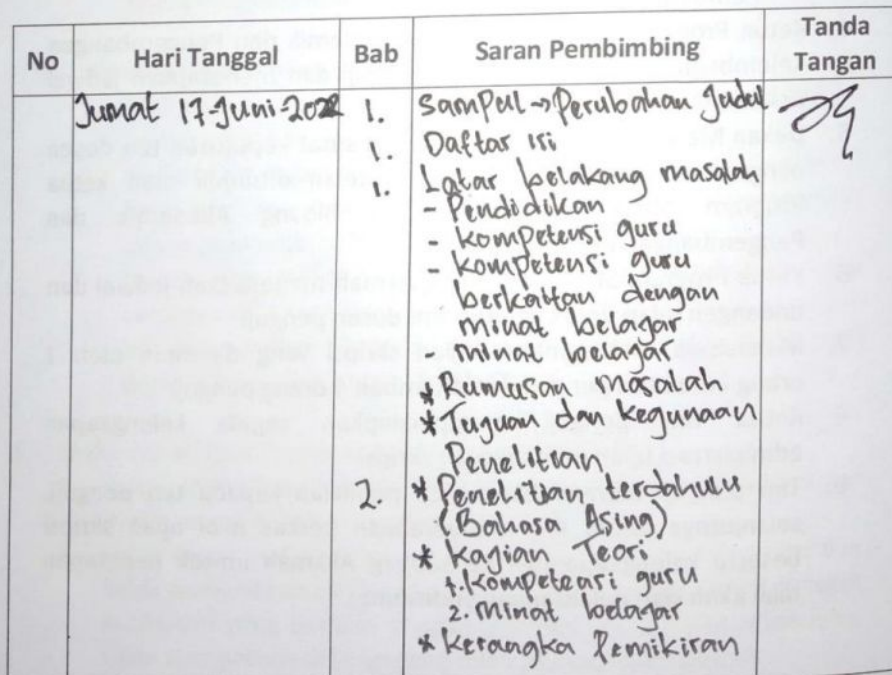 No Hari Tanggal Bab Saran Pembimbing Tanda Tangan
Jumat 17-Juni-2022 1. Sampul → Perubahan Judul
1. Daftar isi
1. Latar belakang masalah
- Pendidikan
- kompetensi guru
- kompetensi guru
berkaitan dengan
minat belajar
- minat belajar
* Rumusan Masalah
* Tujuan dan kegunaan
Penelitian
2. * Penelitian terdahulu
(Bahasa Asing)
* Kajian Teori
1. Kompetensi guru
2. minat belajar
* kerangka Pemikiran